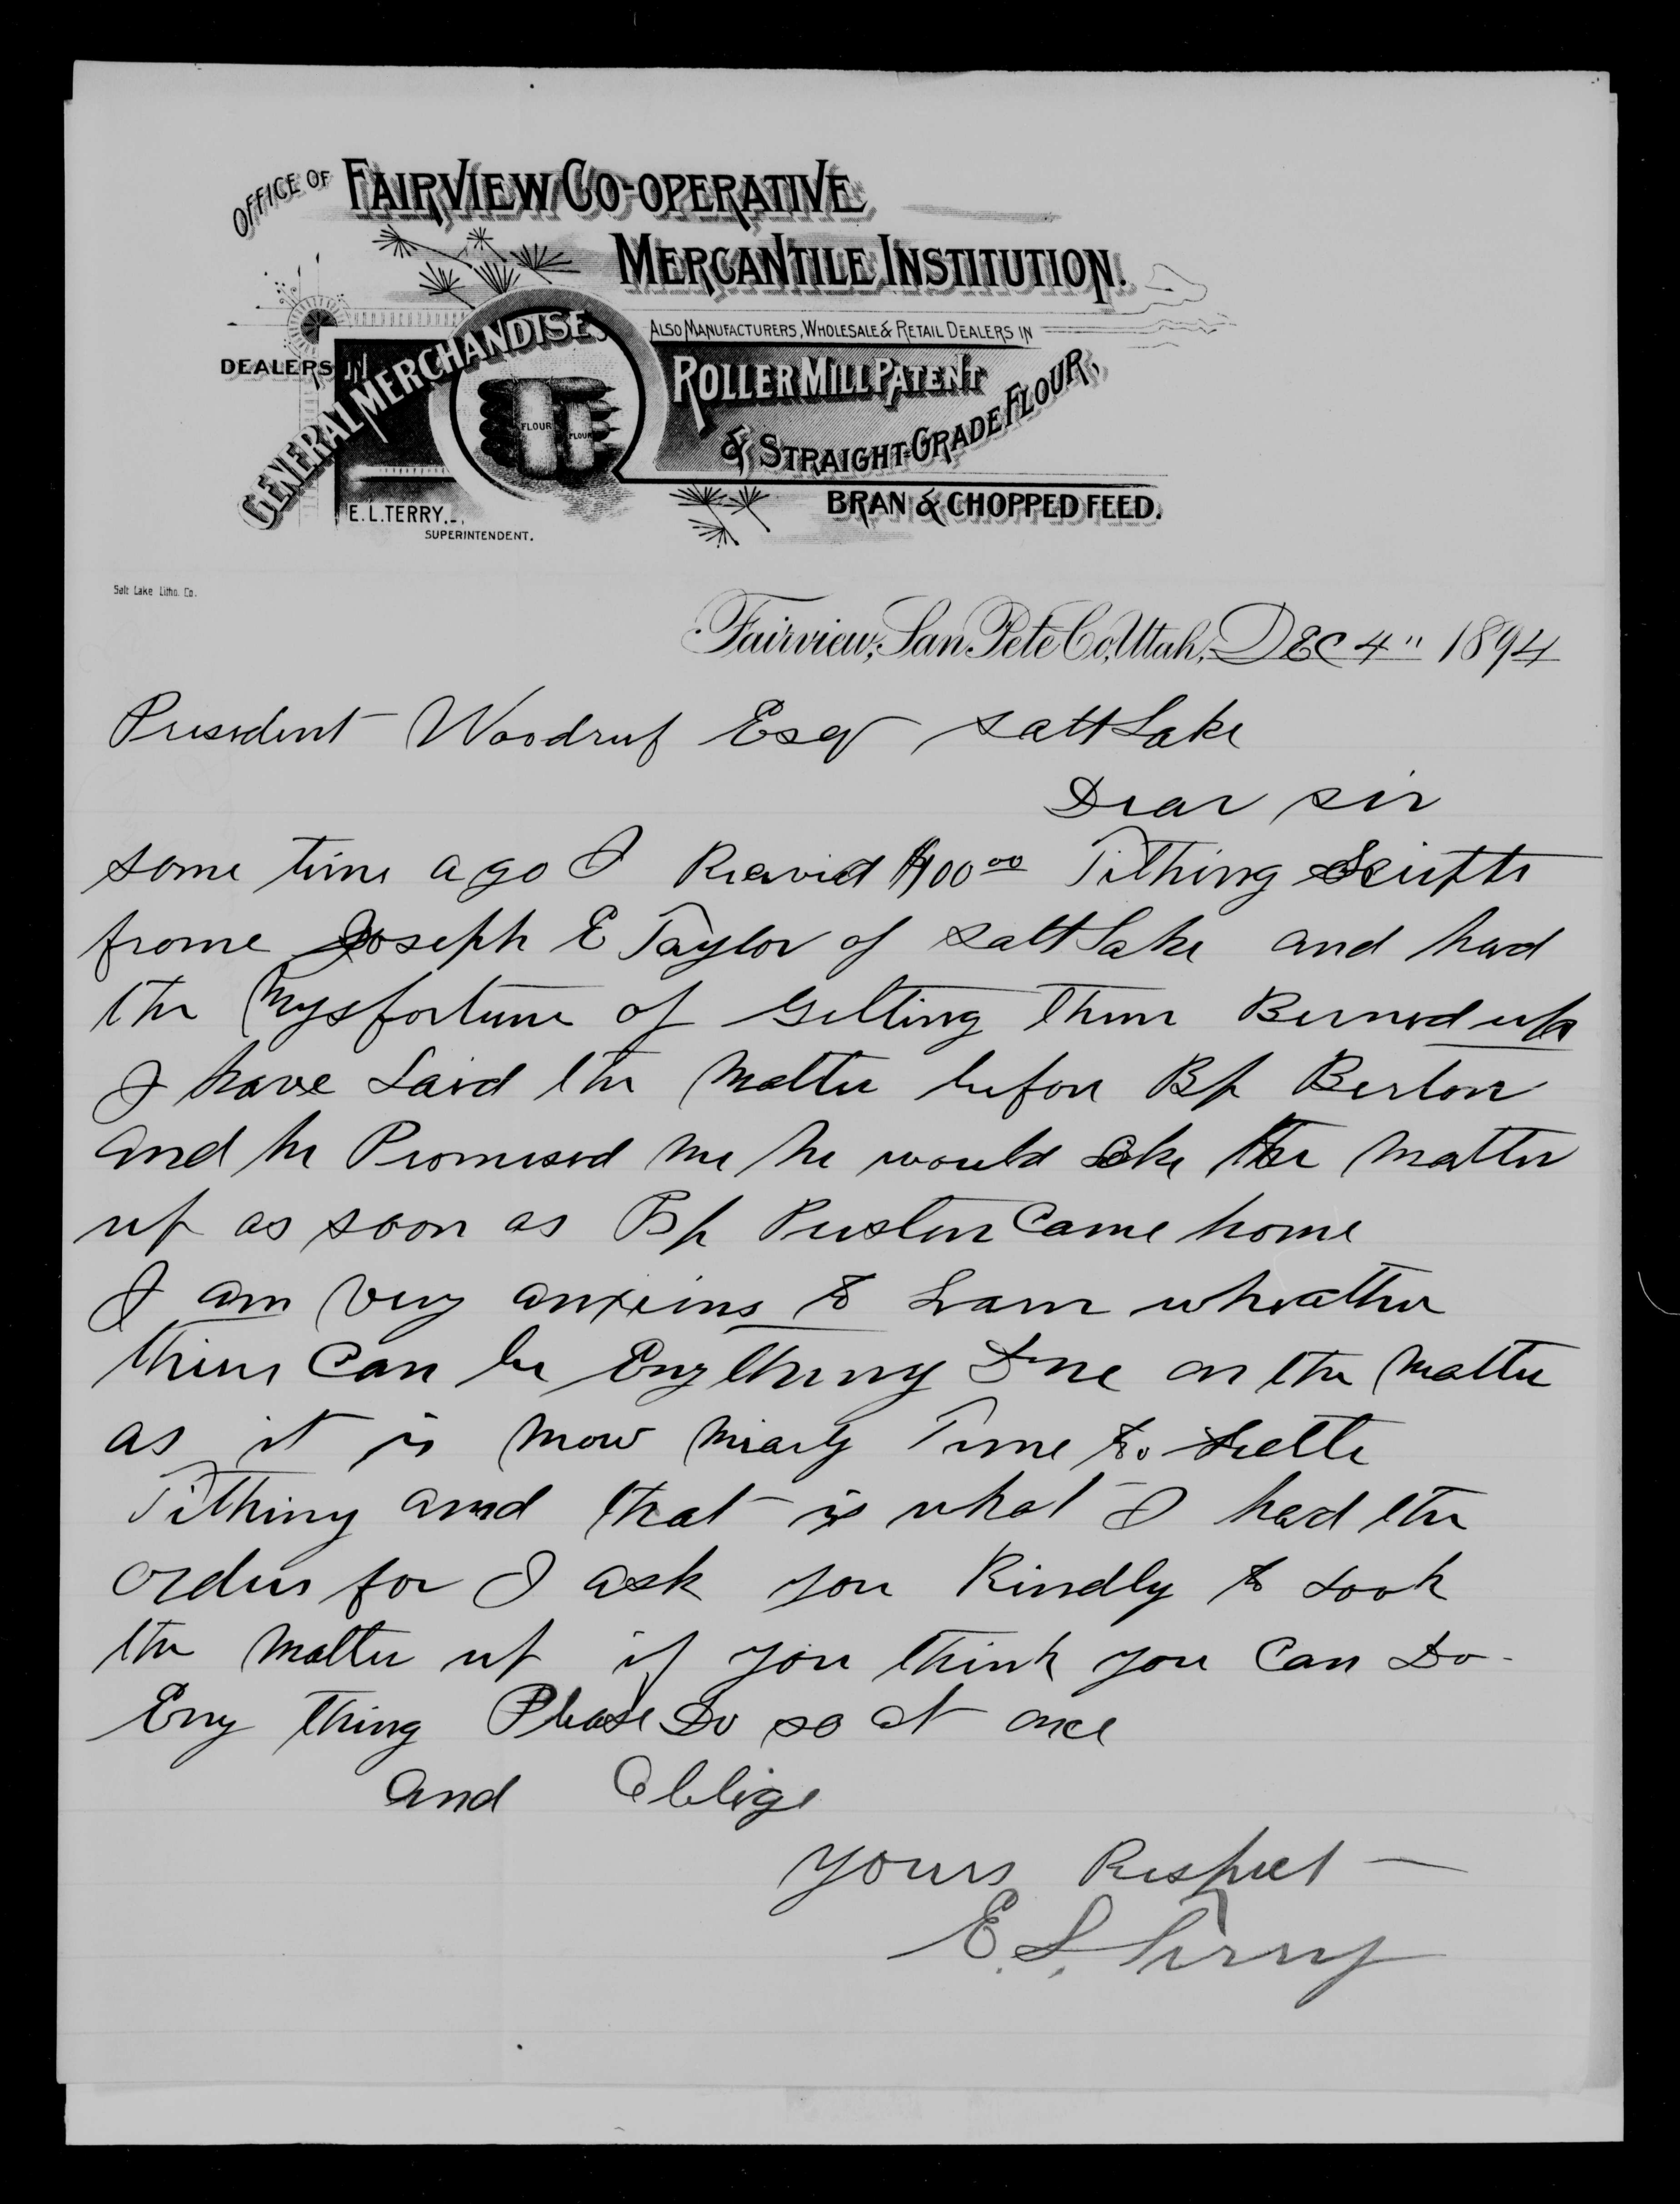 OFFICE OF FAIRVIEW CO-OPERATIVE
MERCANTILE INSTITUTION.
DEALERS IN
GENERAL MERCHANDISE,
ALSO MANUFACTURERS, WHOLESALE & RETAIL DEALERS IN
ROLLER MILL PATENT
& STRAIGHT-GRADE FLOUR,
FLOUR
FLOUR
BRAN & CHOPPED FEED.
E. L. TERRY.
SUPERINTENDENT.
Salt Lake Litho. Co.
Fairview, San Pete Co, Utah, DEC 4" 1894
President Woodruf Esqr Saltt Lake
Dear sir
some time ago I Recvied $100 00 Tithing
frome Joseph E Taylor of Saltt Lake and had
the Mysfortune of getting them Burned up
I have Laid the Matter before Bp Berton
and he Promised me he would take the Matter
up as soon as Bp Preston Came home
I am Very anxeins to Larn wheather
there Can be Eny thing Done on the Matter
as it is now nearly Time to settle
Tithing and that is what I had the
orders for I ask you Kindly to Look
the Matter up if you think you Can Do-
Eny thing Please Do so at once
and Oblige
yours Respect—
E. L. Terry